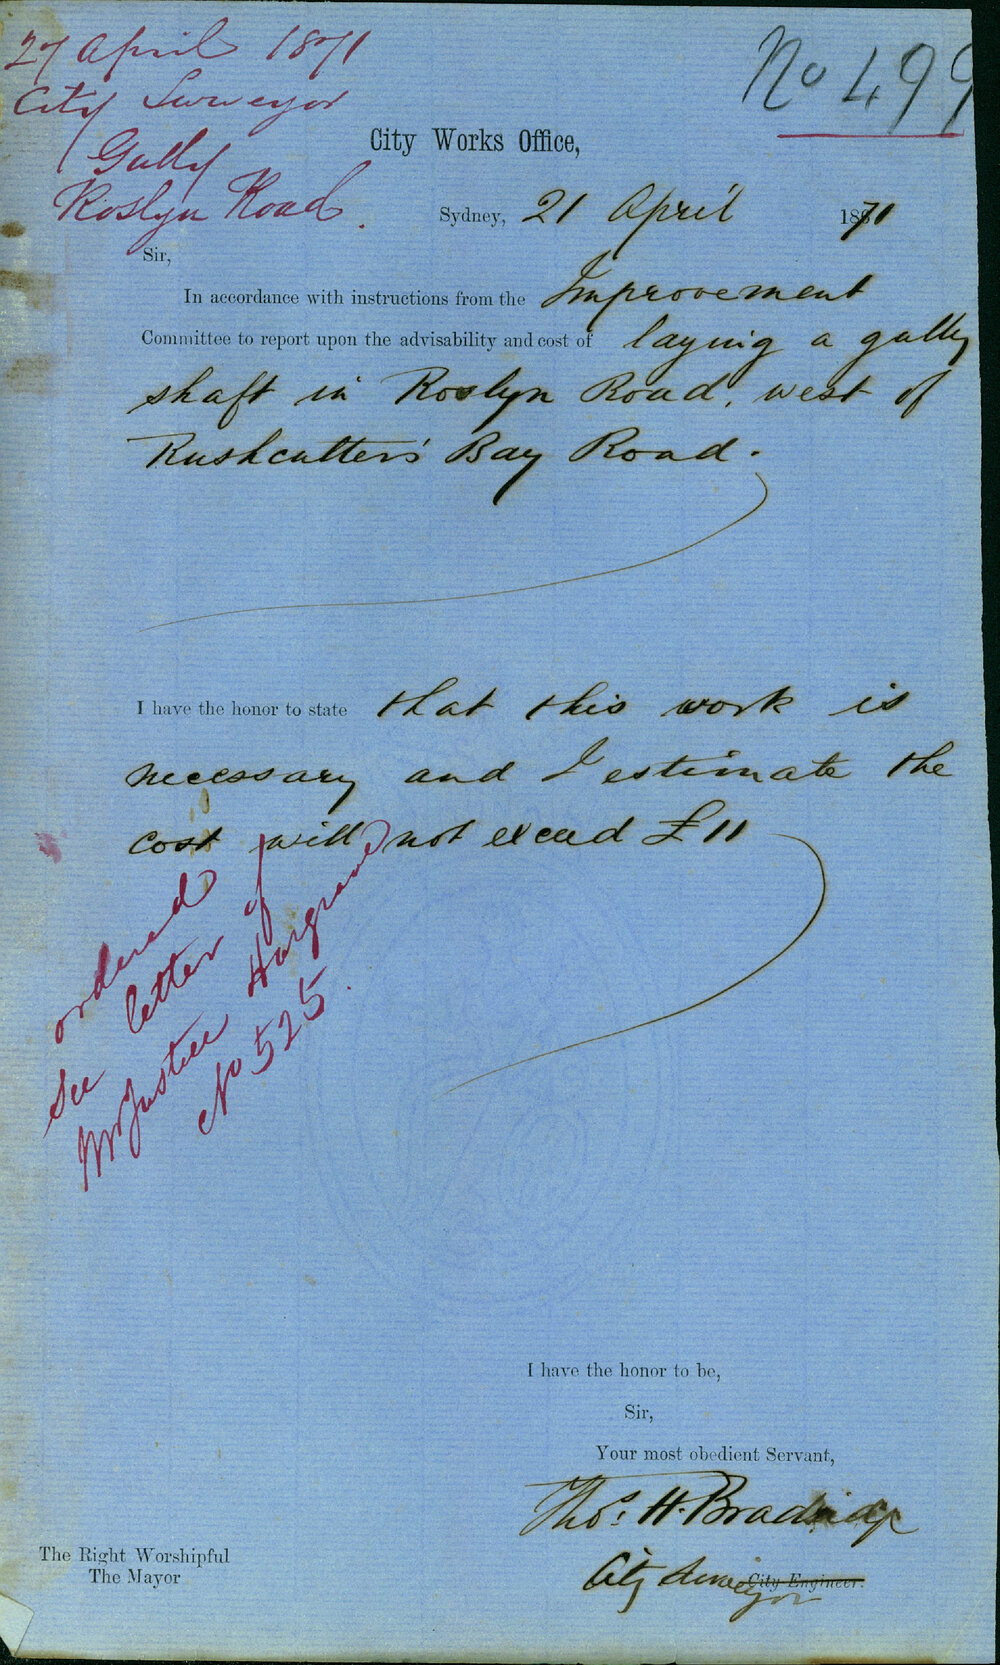 27 April 1871
City Surveyor
Gully
Roslyn Road.
No 499
City Works Office,
Sydney, 21 April 1871
Sir,
In accordance with instructions from the Improvement
Committee to report upon the advisability and cost of laying a gully
shaft in Roslyn Road, west of
Rushcutters' Bay Road.
I have the honor to state that this work is
necessary and I estimate the
cost will not exceed £11
ordered
See letter of
Mr Justice Hargrave
No 525.
I have the honor to be,
Sir,
Your most obedient Servant,
Thos. H. Bradridge
City Surveyor City Engineer.
The Right Worshipful
The Mayor